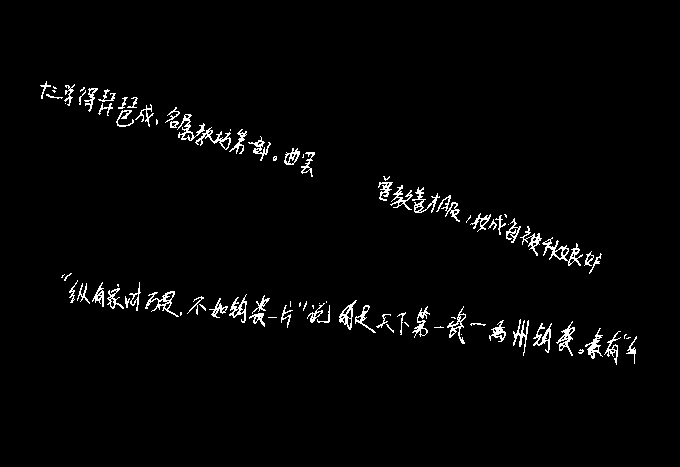 十三学得琵琶成,名属教坊第一部。曲罢
曾教善才服,妆成每被秋娘妒
“纵有家财万贯,不如钧瓷一片”说的是天下第一瓷一禹州钧瓷。素有“